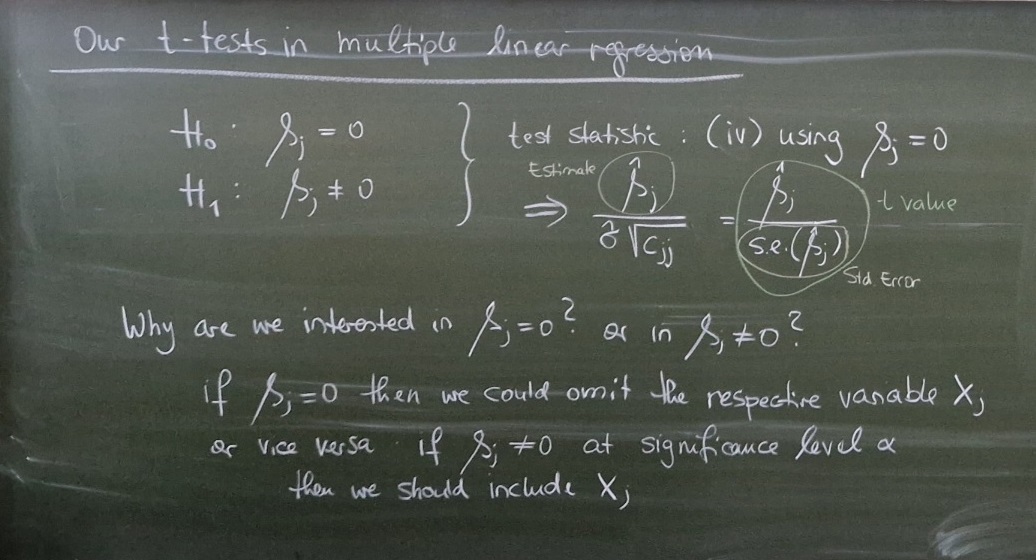 Our t-tests in multiple linear regression
H₀ : βⱼ = 0 } test statistic : (iv) using βⱼ = 0
H₁ : βⱼ ≠ 0
Estimate
⇒ β̂ⱼ / σ̂ √cⱼⱼ = β̂ⱼ / s.e.(β̂ⱼ) t value
Std Error
Why are we interested in βⱼ = 0 ? or in βⱼ ≠ 0 ?
if βⱼ = 0 then we could omit the respective variable Xⱼ
or vice versa . if βⱼ ≠ 0 at significance level α
then we should include Xⱼ